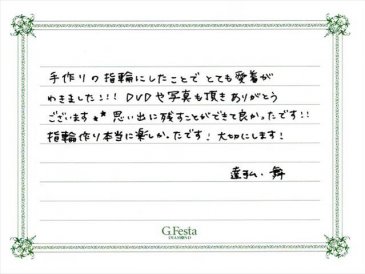 手作りの指輪にしたことでとても愛着が
わきました!!! DVDや写真も頂きありがとう
ございます★★ 思い出に残すことができて良かったです!!
指輪作り本当に楽しかったです! 大切にします!
達弘・舞
G.Festa
DIAMOND